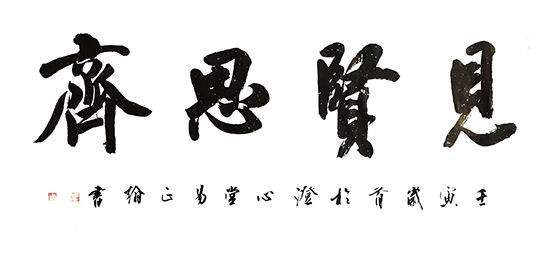 見賢思齊
壬寅歲首於澄心堂易正翰書